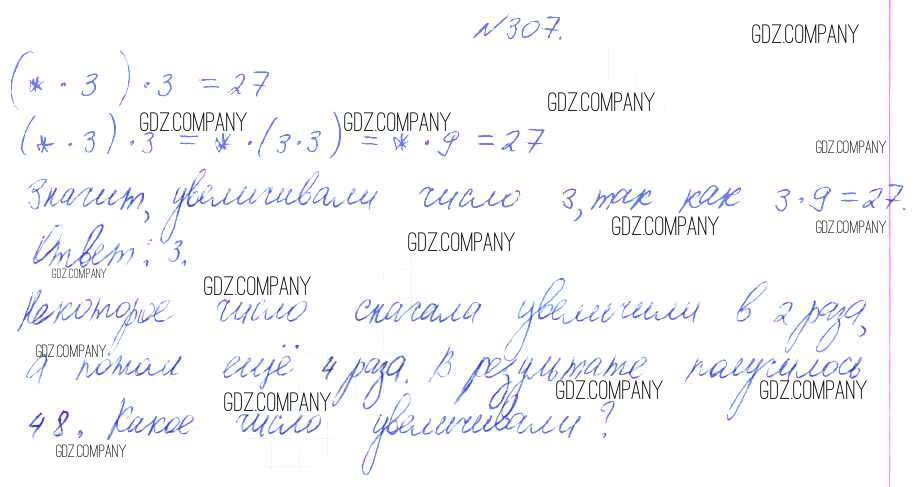 №307.
GDZ.COMPANY
(* · 3) · 3 = 27
GDZ.COMPANY
GDZ.COMPANY GDZ.COMPANY
(* · 3) · 3 = * · (3 · 3) = * · 9 = 27
GDZ.COMPANY
Значит, увеличивали число 3, так как 3 · 9 = 27.
GDZ.COMPANY GDZ.COMPANY
GDZ.COMPANY
Ответ: 3.
GDZ.COMPANY
GDZ.COMPANY
Некоторое число сначала увеличили в 2 раза,
GDZ.COMPANY
а потом ещё 4 раза. В результате получилось
GDZ.COMPANY GDZ.COMPANY
GDZ.COMPANY
48. Какое число увеличивали?
GDZ.COMPANY